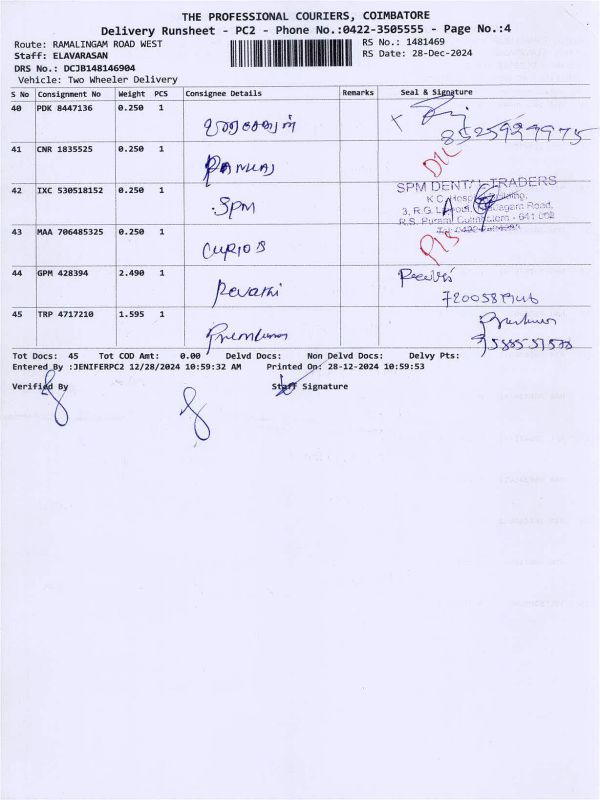 THE PROFESSIONAL COURIERS, COIMBATORE
Delivery Runsheet - PC2 - Phone No.:0422-3505555 - Page No.:4
Route: RAMALINGAM ROAD WEST RS No.: 1481469
Staff: ELAVARASAN RS Date: 28-Dec-2024
DRS No.: DCJB148146904
Vehicle: Two Wheeler Delivery
S No Consignment No Weight PCS Consignee Details Remarks Seal & Signature
40 PDK 8447136 0.250 1
8525929975
41 CNR 1835525 0.250 1
PANKAJ
42 IXC 530518152 0.250 1 SPM DENTAL TRADERS
SPM
43 MAA 706485325 0.250 1
CURIO B
44 GPM 428394 2.490 1
Revathi
45 TRP 4717210 1.595 1
Premkumar
Tot Docs: 45 Tot COD Amt: 0.00 Delvd Docs: Non Delvd Docs: Delvy Pts:
Entered By :JENIFERPC2 12/28/2024 10:59:32 AM Printed On: 28-12-2024 10:59:53
Verified By Staff Signature